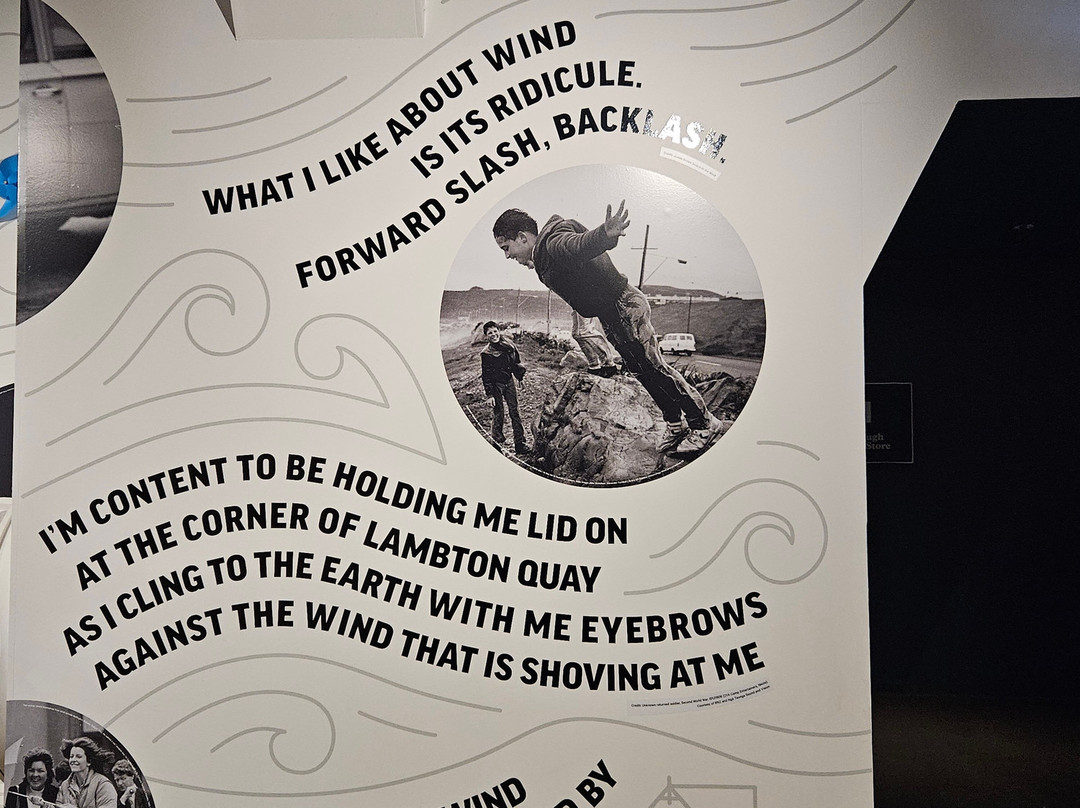 WHAT I LIKE ABOUT WIND
IS ITS RIDICULE.
FORWARD SLASH, BACKLASH.
I'M CONTENT TO BE HOLDING ME LID ON
AT THE CORNER OF LAMBTON QUAY
AS I CLING TO THE EARTH WITH ME EYEBROWS
AGAINST THE WIND THAT IS SHOVING AT ME
WIND
BY
ugh
Store